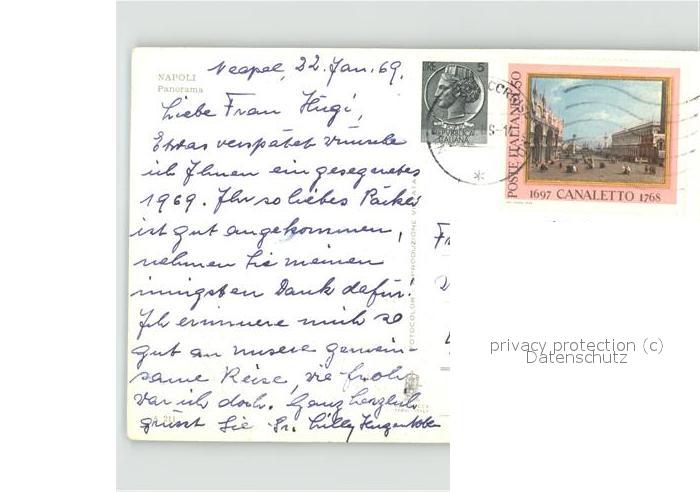 NAPOLI
Panorama
Neapel, 22. Jan. 69.
Liebe Frau Hügi,
Etwas verspätet wünsche
ich Ihnen ein gesegnetes
1969. Ihr so liebes Päckli
ist gut angekommen,
nehmen Sie meinen
innigsten Dank dafür!
Ich erinnere mich so
gut an unsere gemein-
same Reise, wie froh
war ich doch. Ganz herzlich
grüsst Sie Sr. Lilly Hugentobler
5
REPUBBLICA
ITALIANA
POSTE ITALIANE L.50
1697 CANALETTO 1768
Fr
FOTOCOLOR
RIPRODUZIONE VIETATA
privacy protection (c)
Datenschutz